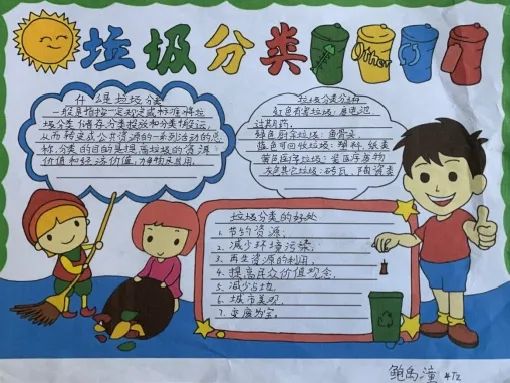 垃圾分类
什么是垃圾分类
一般是指按一定规定或标准将垃
圾分类储存、分类投放和分类搬运,
从而转变成公共资源的一系列活动的总
称.分类的目的是提高垃圾的资源
价值和经济价值,力争物尽其用。
垃圾分类分辨
红色有害垃圾:废电池
过期药
绿色厨余垃圾:鱼骨头
蓝色可回收垃圾:塑料.纸类
黄色医疗垃圾:
灰色其它垃圾:砖瓦、陶瓷类
垃圾分类的好处
1.节约资源,
2.减少环境污染,
3.再生资源的利用,
4.提高民众价值观念,
5.减少占地,
6.城市美观,
7.变废为宝。
鲍禹潼 4/2